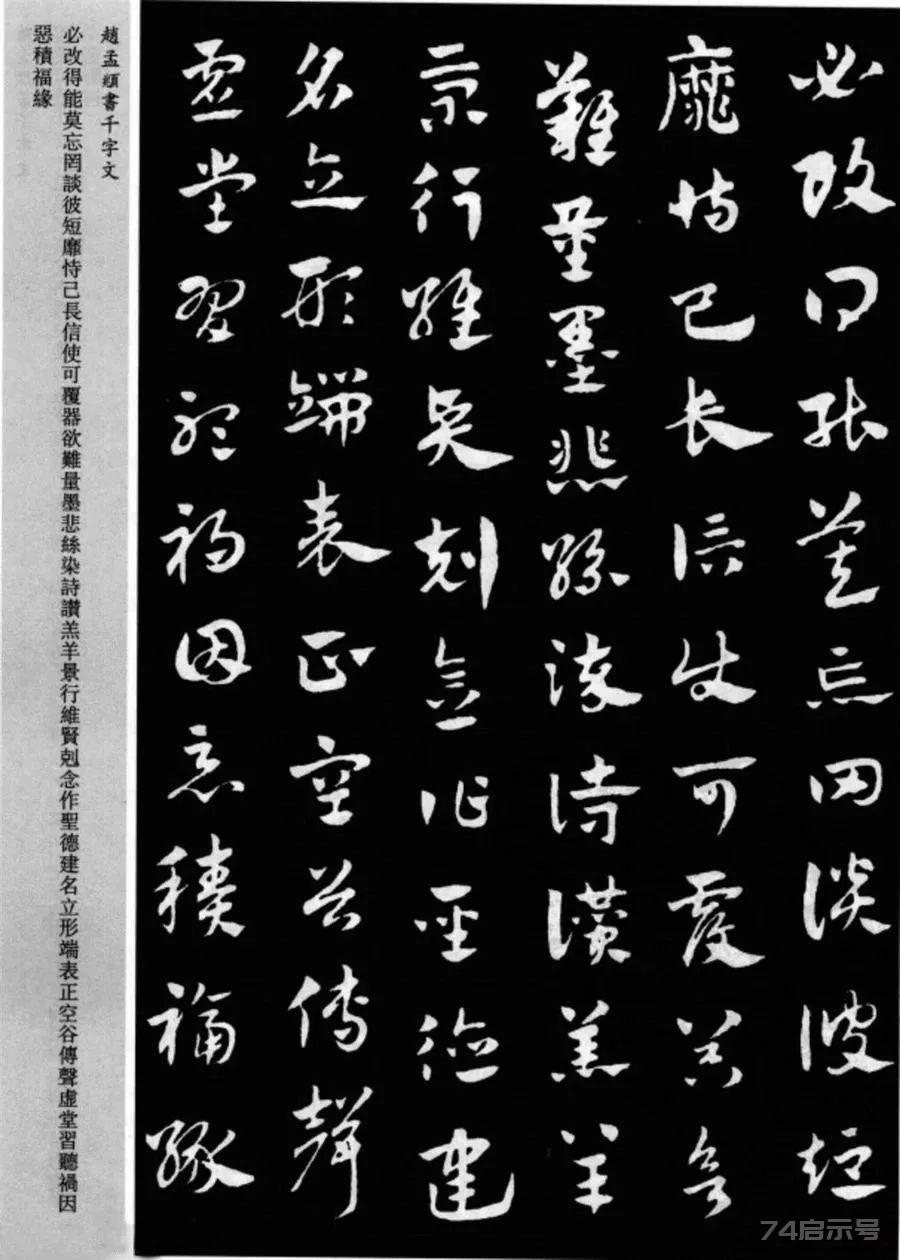 必改得能莫忘罔談彼短
靡恃己長信使可覆器欲
難量墨悲絲染詩讚羔羊
景行維賢剋念作聖德建
名立形端表正空谷傳聲
虛堂習聽禍因惡積福緣
趙孟頫書千字文
必改得能莫忘罔談彼短靡恃己長信使可覆器欲難量墨悲絲染詩讚羔羊景行維賢剋念作聖德建名立形端表正空谷傳聲虛堂習聽禍因
惡積福緣
74启示号